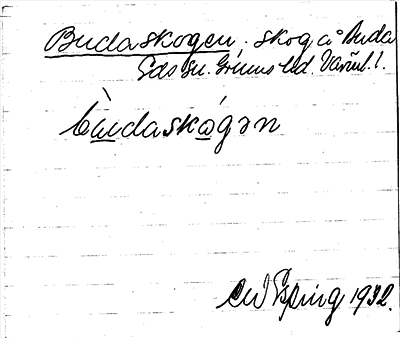 Budaskogen. skog å Buda
Eds sn. Grums hd. Värml.
bu̲dasko̲gən
Espling 1932.